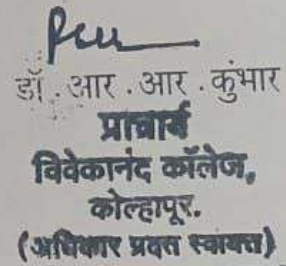 डॉ. आर. आर. कुंभार
प्राचार्य
विवेकानंद कॉलेज,
कोल्हापूर.
(अधिकार प्रदत्त स्वायत्त)